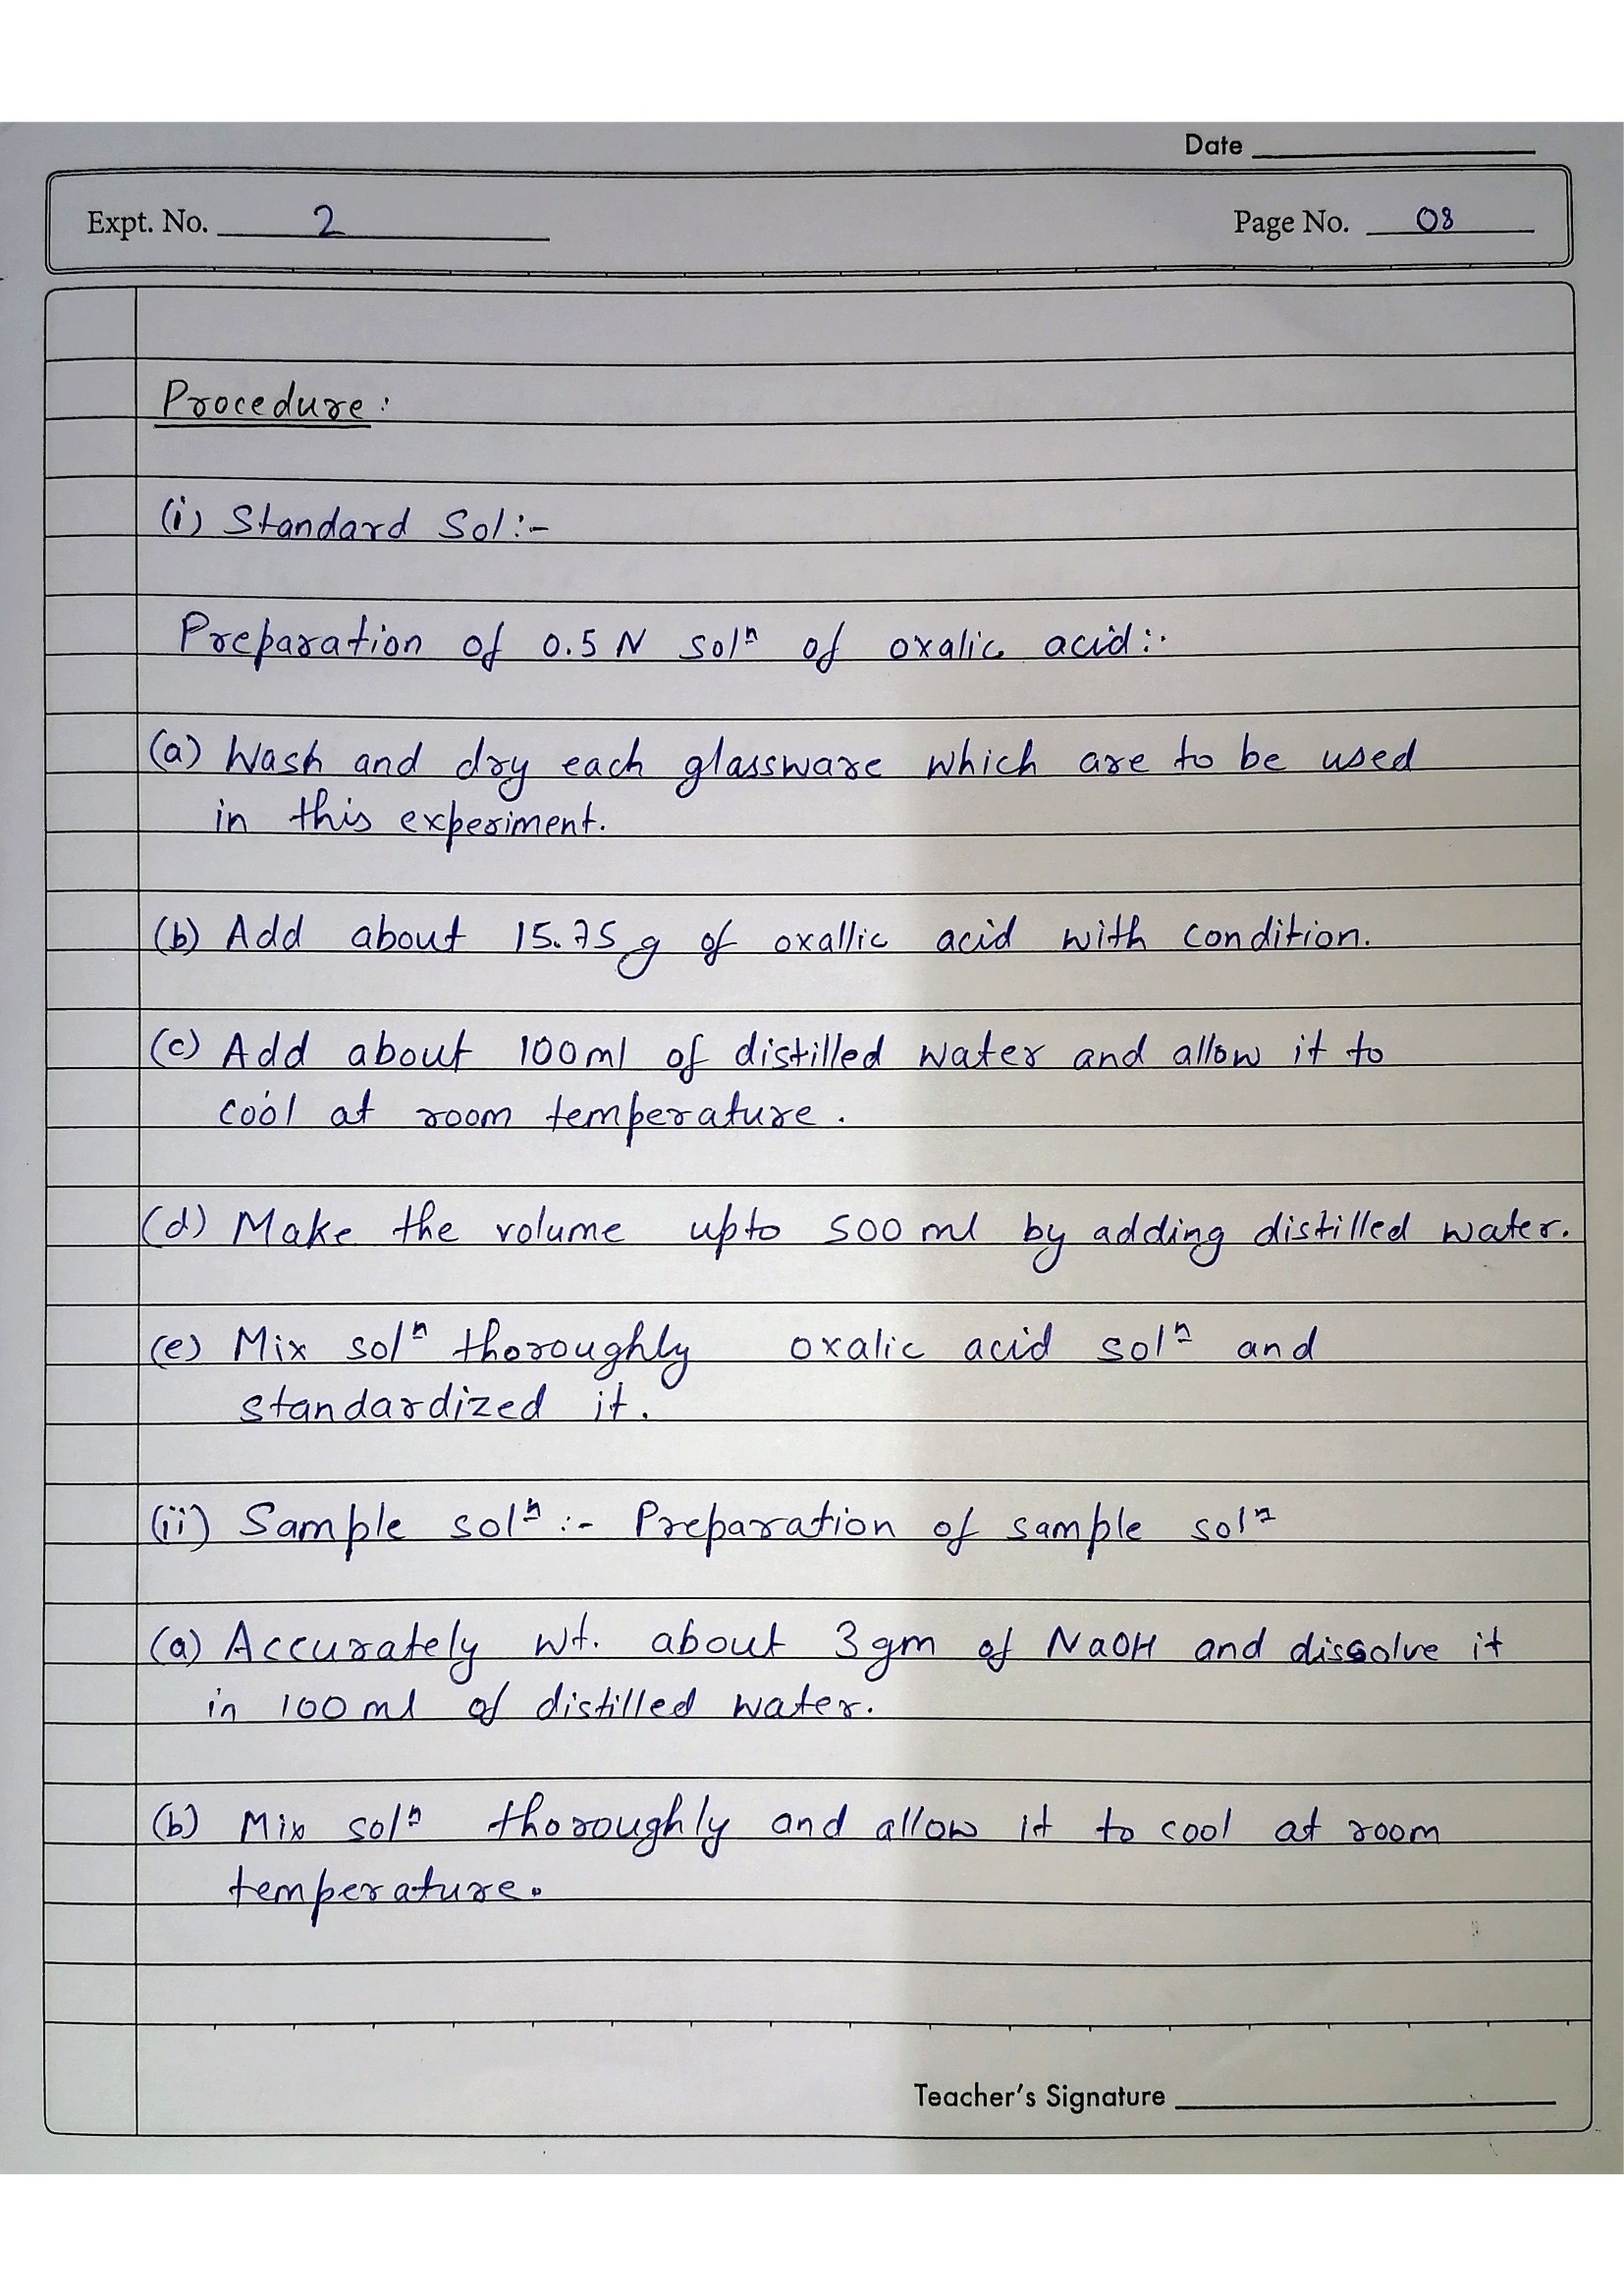 Date
Expt. No. 2
Page No. 08
Procedure:
(i) Standard Sol:-
Preparation of 0.5 N solⁿ of oxalic acid:-
(a) Wash and dry each glassware which are to be used
in this experiment.
(b) Add about 15.75 g of oxallic acid with condition.
(c) Add about 100 ml of distilled water and allow it to
cool at room temperature.
(d) Make the volume upto 500 ml by adding distilled water.
(e) Mix solⁿ thoroughly oxalic acid solⁿ and
standardized it.
(ii) Sample solⁿ :- Preparation of sample solⁿ
(a) Accurately wt. about 3 gm of NaOH and dissolve it
in 100 ml of distilled water.
(b) Mix solⁿ thoroughly and allow it to cool at room
temperature.
Teacher's Signature